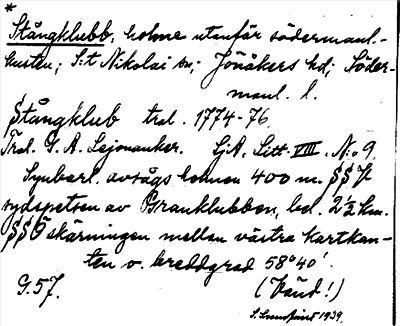 *
Stångklubb, holme utanför södermanl.-
kusten; S:t Nikolai sn; Jönåkers hd; Söder-
manl. l.
§tångklub tral. 1774-76
Tral. G. A. Lejonanker. GjA, Litt. VIII. N:o 9.
Synbarl. avsågs holmen 400 m. §§V
sydspetsen av Branklubben, bel. 2½ km.
§§Ö skärningen mellan västra kartkan-
ten o. breddgrad 58°40'.
G.57. (Vänd!)
1939.